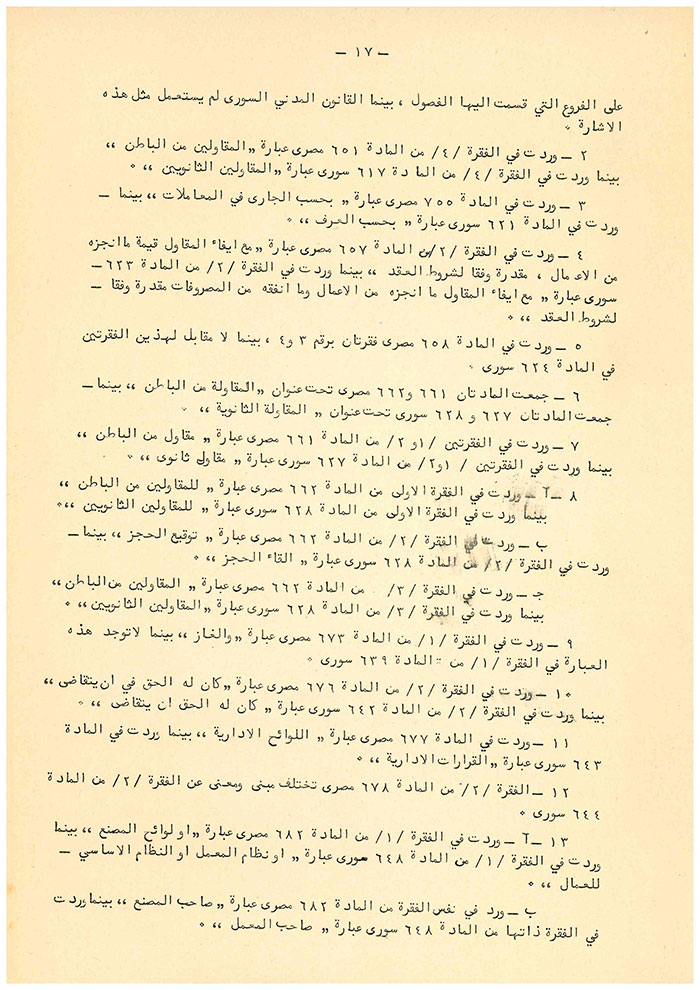 – ١٧ –
على الفروع التي قسمت اليها الفصول ، بينما القانون المدني السورى لم يستعمل مثل هذه
الاشارة ٠
٢ – وردت في الفقرة /٤/ من المادة ٦٥١ مصرى عبارة „ المقاولين من الباطن ،،
بينما وردت في الفقرة /٤/ من المادة ٦١٧ سورى عبارة „ المقاولين الثانويين ،، ٠
٣ – وردت في المادة ٧٥٥ مصرى عبارة „ بحسب الجارى في المعاملات ،، بينما –
وردت في المادة ٦٢١ سورى عبارة „ بحسب العرف ،، ٠
٤ – وردت في الفقرة /٢/ من المادة ٦٥٧ مصرى عبارة „ مع ايفاء المقاول قيمة ما انجزه
من الاعمال ، مقدرة وفقا لشروط العقد ،، بينما وردت في الفقرة /٢/ من المادة ٦٢٣ –
سورى عبارة „ مع ايفاء المقاول ما انجزه من الاعمال وما انفقه من المصروفات مقدرة وفقا –
لشروط العقد ،، ٠
٥ – وردت في المادة ٦٥٨ مصرى فقرتان برقم ٣ و ٤ ، بينما لا مقابل لهذين الفقرتين
في المادة ٦٢٤ سورى ٠
٦ – جمعت المادتان ٦٦١ و ٦٦٢ مصرى تحت عنوان „ المقاولة من الباطن ،، بينما –
جمعت المادتان ٦٢٧ و ٦٢٨ سورى تحت عنوان „ المقاولة الثانوية ،، ٠
٧ – وردت في الفقرتين /١ و ٢/ من المادة ٦٦١ مصرى عبارة „ مقاول من الباطن ،،
بينما وردت في الفقرتين /١ و٢/ من المادة ٦٢٧ سورى عبارة „ مقاول ثانوى ،، ٠
٨ – آ – وردت في الفقرة الاولى من المادة ٦٦٢ مصرى عبارة „ للمقاولين من الباطن ،،
بينما وردت في الفقرة الاولى من المادة ٦٢٨ سورى عبارة „ للمقاولين الثانويين ،، ٠
ب – وردت في الفقرة /٢/ من المادة ٦٦٢ مصرى عبارة „ توقيع الحجز ،، بينما –
وردت في الفقرة /٢/ من المادة ٦٢٨ سورى عبارة „ القاء الحجز ،، ٠
جـ – وردت في الفقرة /٣/ من المادة ٦٦٢ مصرى عبارة „ المقاولين من الباطن ،،
بينما وردت في الفقرة /٣/ من المادة ٦٢٨ سورى عبارة „ المقاولين الثانويين ،، ٠
٩ – وردت في الفقرة /١/ من المادة ٦٧٣ مصرى عبارة „ والغاز ،، بينما لاتوجد هذه
العبارة في الفقرة /١/ من المادة ٦٣٩ سورى ٠
١٠ – وردت في الفقرة /٢/ من المادة ٦٧٦ مصرى عبارة „ كان له الحق في ان يتقاضى ،،
بينما وردت في الفقرة /٢/ من المادة ٦٤٢ سورى عبارة „ كان له الحق ان يتقاضى ،، ٠
١١ – وردت في المادة ٦٧٧ مصرى عبارة „ اللوائح الادارية ،، بينما وردت في المادة
٦٤٣ سورى عبارة „ القرارات الادارية ،، ٠
١٢ – الفقرة /٢/ من المادة ٦٧٨ مصرى تختلف مبنى ومعنى عن الفقرة /٢/ من المادة
٦٤٤ سورى ٠
١٣ – آ – وردت في الفقرة /١/ من المادة ٦٨٢ مصرى عبارة „ او لوائح المصنع ،، بينما
وردت في الفقرة /١/ من المادة ٦٤٨ سورى عبارة „ او نظام المعمل او النظام الاساسي –
للعمال ،، ٠
ب – ورد في نفس الفقرة من المادة ٦٨٢ مصرى عبارة „ صاحب المصنع ،، بينما وردت
في الفقرة ذاتها من المادة ٦٤٨ سورى عبارة „ صاحب المعمل ،، ٠